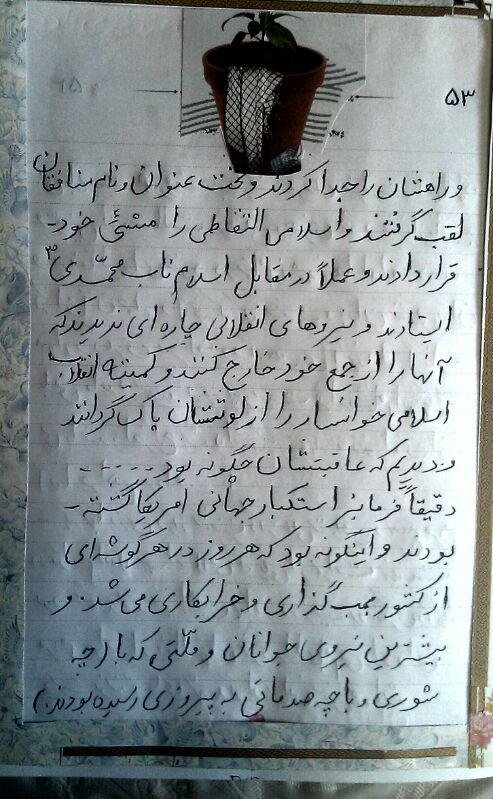 ۵۳
۶۵
و راهشان را جدا کردند و تحت عنوان و نام منافقان
لقب گرفتند و اسلامی التقاطی را مشی خود -
قرار دادند و عملاً در مقابل اسلام ناب محمّدی
ایستادند و نیروهای انقلابی چاره ای ندیدند که
آنها را از جمع خود خارج کنند و کمیته انقلاب
اسلامی خوانسار را از لوثشان پاک گردانند
و دیدیم که عاقبتشان چگونه بود .....
دقیقاً فرمانبر استکبار جهانی امریکا گشته -
بودند و اینگونه بود که هر روز در هر گوشه ای
از کشور بمب گذاری و خرابکاری می شد . و
بیشترین نیروی جوانان و ملّتی که با (چه
شوری و با چه صدماتی به پیروزی رسیده بودند)